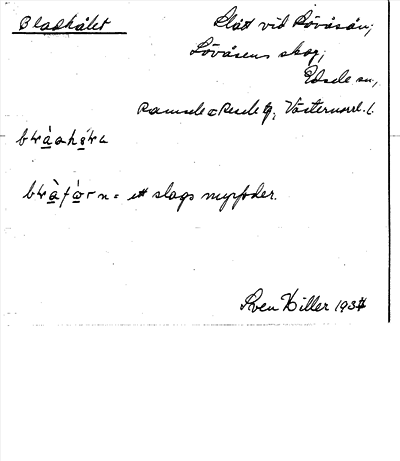 Bladhålet
Slått vid Lövåsån;
Lövåsens skog;
Edsele sn,
Ramsele o Resele tg, Västernorrl. l.
= ett slags myrfoder.
Sven Hiller 1934